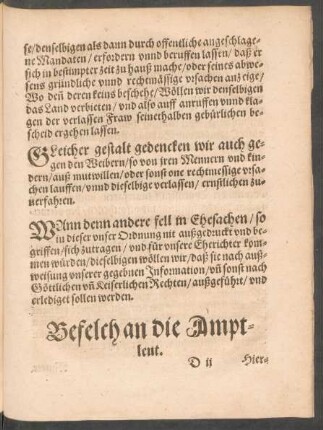 se/denselbigen als dann durch offentliche angeschlage-
ne Mandaten/ erfordern vnnd beruffen lassen/ daß er
sich in bestimpter zeit zu hauß mache/ oder seines abwe-
sens gründliche vnnd rechtmässige vrsachen anzeige/
Wo deñ deren keins beschehe/ Wöllen wir denselbigen
das Land verbieten/ vnd also auff anruffen vnnd kla-
gen der verlassen Fraw seinethalben gebürlichen be-
scheid ergehen lassen.
GLeicher gestalt gedencken wir auch ge-
gen den Weibern/ so von jren Mennern vnd kin-
dern/ auß mutwillen/ oder sonst one rechtmessige vrsa-
chen lauffen/ vnnd dieselbige verlassen/ ernstlichen zu-
uerfahren.
WAnn denn andere fell in Ehesachen/ so
in dieser vnser Ordnung nit außgedruckt vnd be-
griffen/ sich zutragen/ vnd für vnsere Eherichter kom-
men würden/ dieselbigen wöllen wir/ daß sie nach auß-
weisung vnserer gegebnen Information/ vñ sonst nach
Göttlichen vñ Keiserlichen Rechten/ außgeführt/ vnd
erlediget sollen werden.
Befelch an die Ampt-
leut.
D ii Hier-